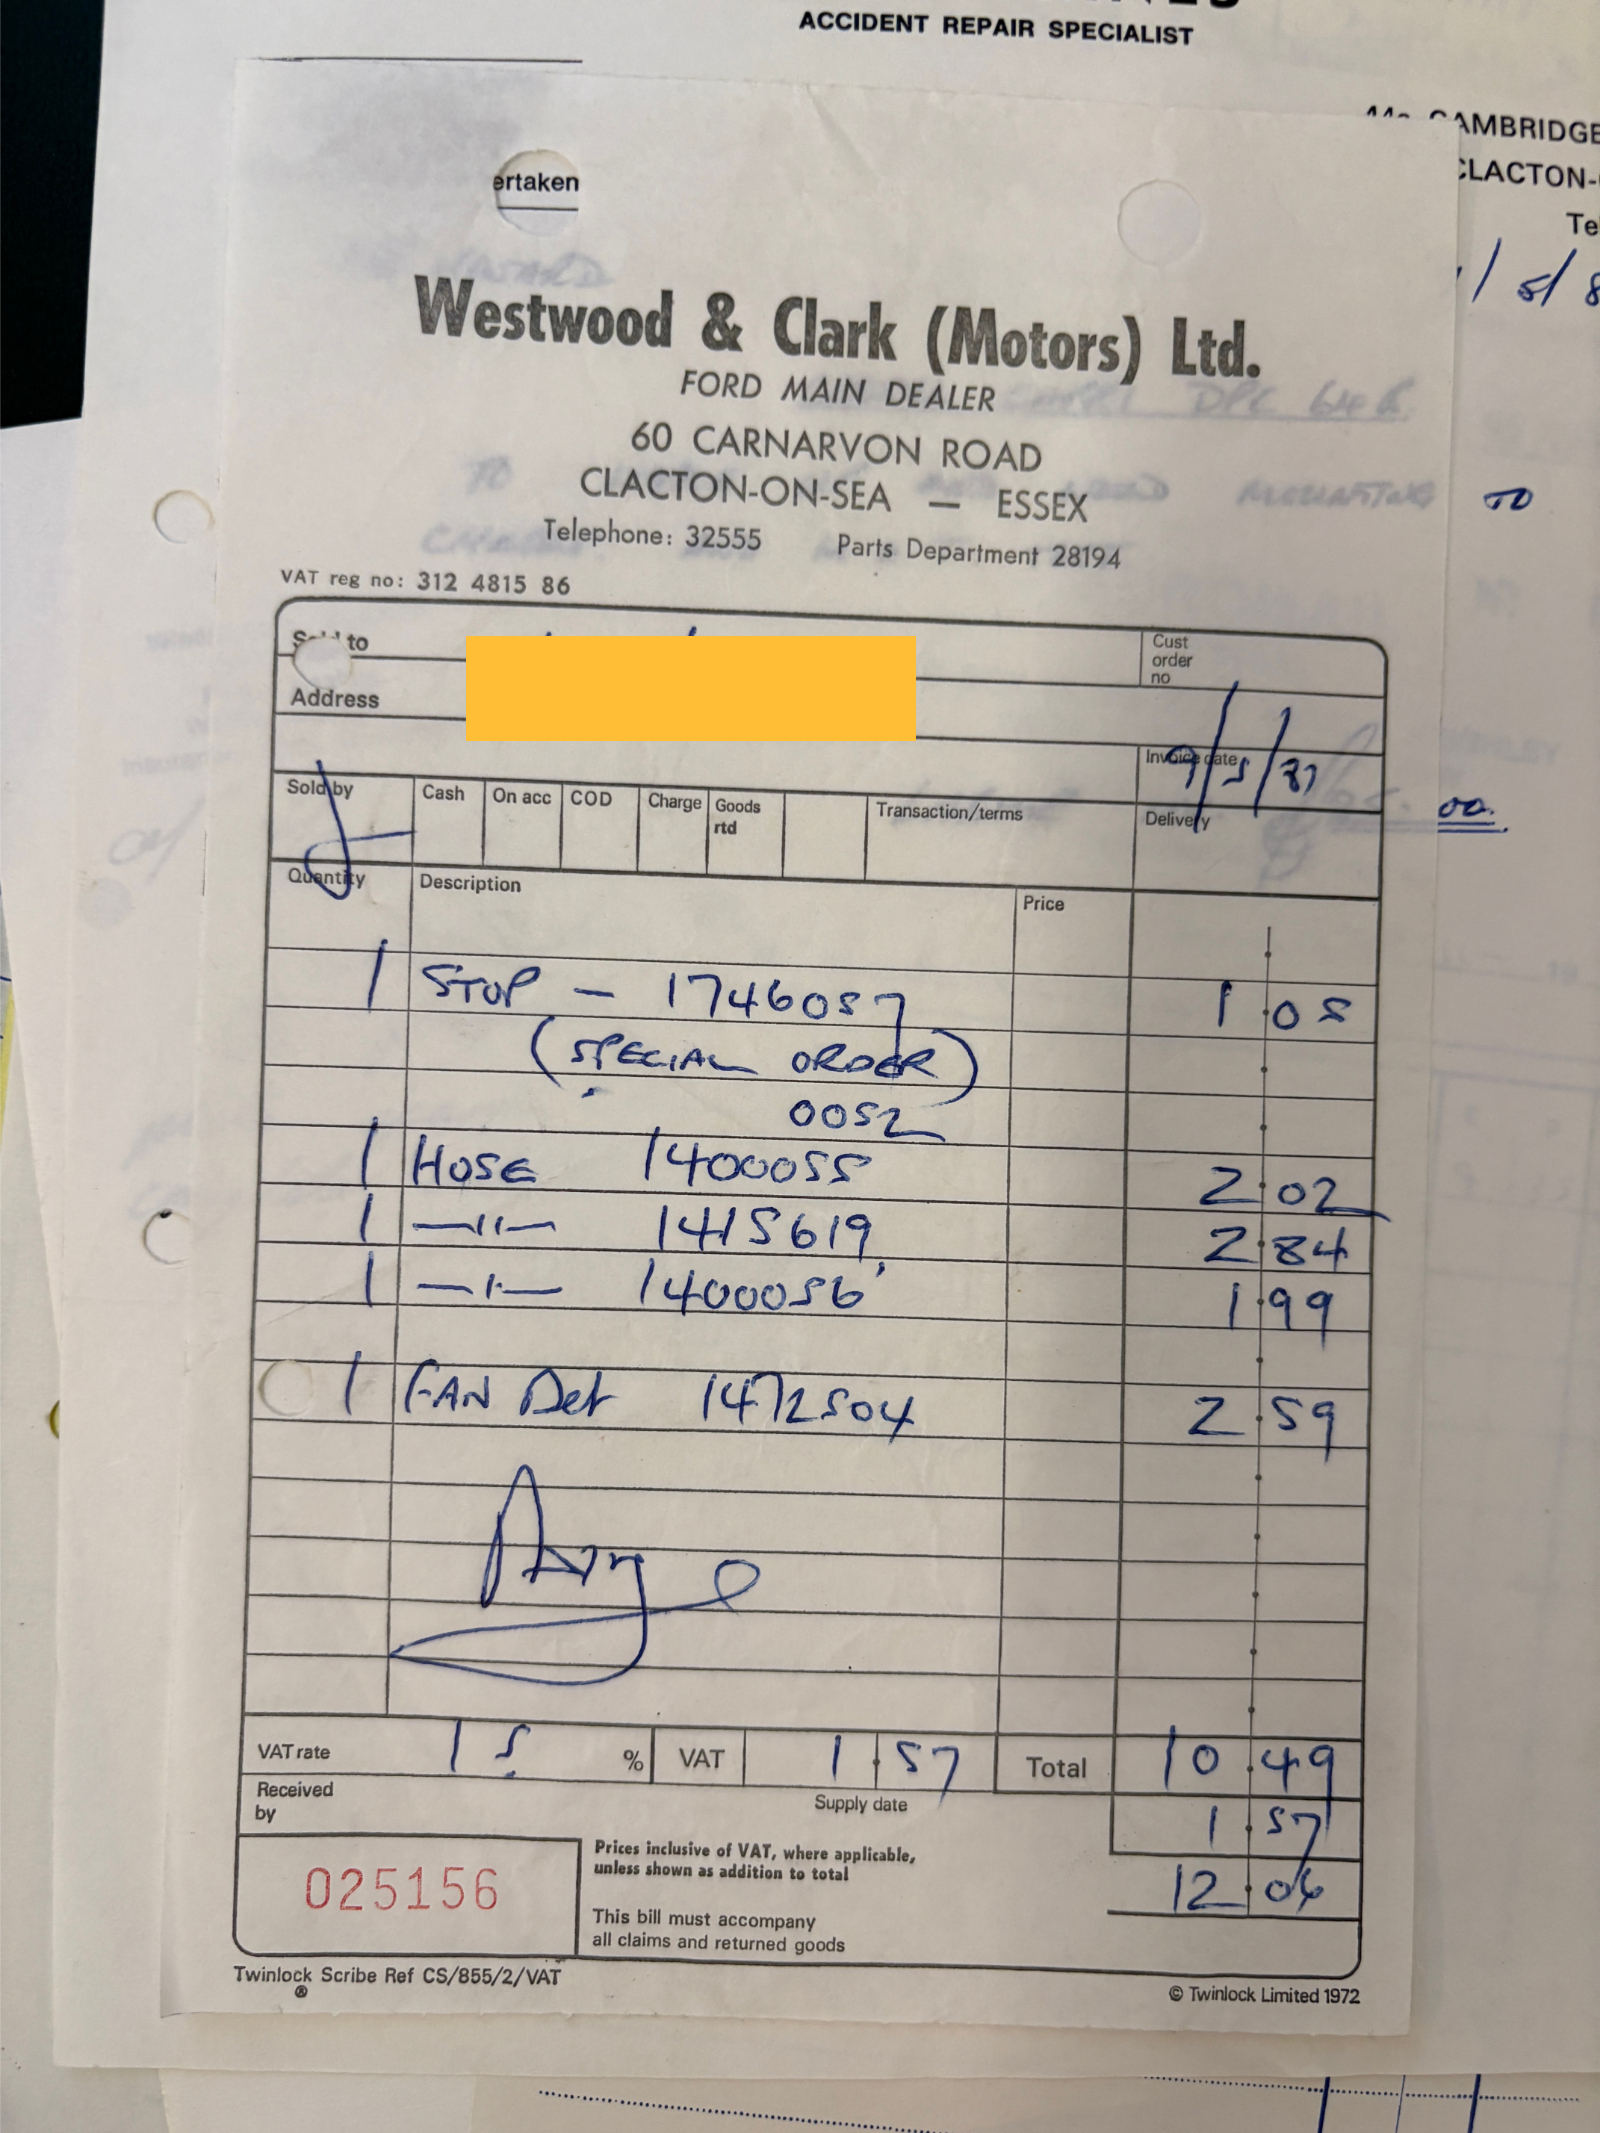 ACCIDENT REPAIR SPECIALIST
CAMBRIDGE
CLACTON-
Tel
/5/8
ertaken
Westwood & Clark (Motors) Ltd.
FORD MAIN DEALER
60 CARNARVON ROAD
CLACTON-ON-SEA — ESSEX
TO
Telephone: 32555 Parts Department 28194
VAT reg no: 312 4815 86
Sold to
Cust order no
Address
Invoice date 9/5/87
Sold by Cash On acc COD Charge Goods rtd Transaction/terms Delivery
00.
Quantity Description Price
1 STOP — 1746057 1.05
(SPECIAL ORDER)
0052
1 HOSE 1400055 2.02
1 —"— 1415619 2.84
1 —"— 1400056 1.99
1 FAN Belt 1472504 2.59
VAT rate 15. % VAT 1.57 Total 10.49
Received by
Supply date
1.57
12.06
025156
Prices inclusive of VAT, where applicable,
unless shown as addition to total
This bill must accompany
all claims and returned goods
Twinlock Scribe Ref CS/855/2/VAT
®
© Twinlock Limited 1972